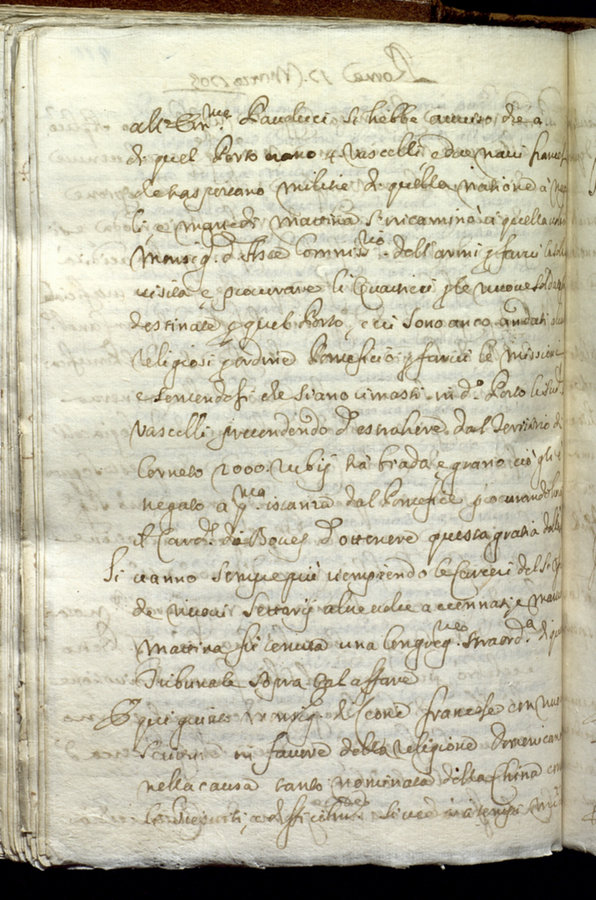 all'Em.mo Paulucci si hebbe avviso, che a
di quel Porto erano 4 vascelli, e due navi frances
che trasportano militie di quella natione a
li, e martedi mattina s'incaminò a quella
Monsig.r d'Aste Commiss.rio dell'armi p farvi la solita
visita, e procurare li Quartieri p le nuove soldatesche
destinate p quel Porto, e vi sono anco andati
religiosi p ordine Pontificio p farvi le missioni
e sentendosi che siano rimasti in d.o Porto li sud.i
vascelli pretendendo d'estrahere dal Territorio di
Corneto 2000 rubij tra biada, e grano, ciò gli è
negato a p.ma istanza dal Pontefice procurando
il Card. di d'ottenere questa gratia
Si vanno sempre più riempiendo le Carceri del S.
de nuovi Settarij altre volte accennati, e
mattina fù tenuta una Congreg.ne straord.a di
Tribunale sopra tal affare
È qui giunto Monsig. di francese con
in favore della religione Domenicana
nella causa tanto nominata della China con
li Giesuiti, e